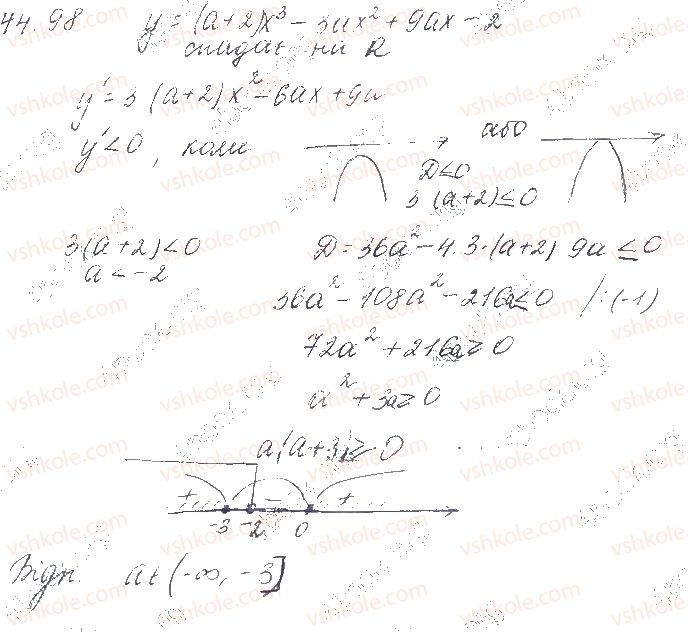 44.98 y = (a+2)x³ - 3ax² + 9ax - 2
спадає на R
y' = 3(a+2)x² - 6ax + 9a
y' < 0, коли або
D<0
3(a+2) ≤ 0
3(a+2) < 0 D = 36a² - 4·3·(a+2) 9a ≤ 0
a < -2
36a² - 108a² - 216a ≤ 0 /·(-1)
72a² + 216a ≥ 0
a² + 3a ≥ 0
a(a+3) ≥ 0
+ - +
-3 -2 0
Відп. a ∈ (-∞, -3]